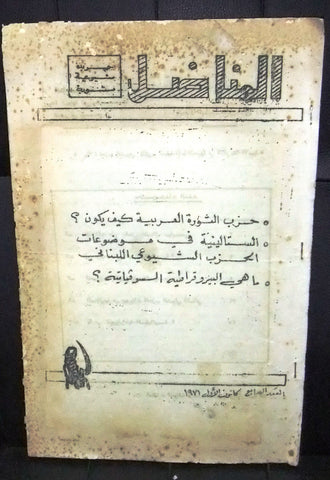 المناضل
حزب الثورة العربية كيف يكون ؟
الستالينية في موضوعات
الحزب الشيوعي اللبناني
ما هي البيروقراطية السوفياتية ؟
العدد السابع كانون الأول ١٩٧١